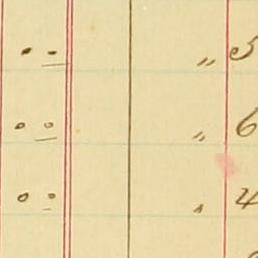 " 5
o o " 6
o o " 4